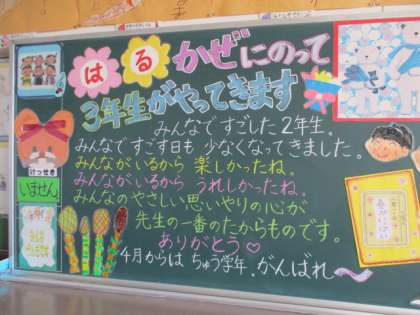 はるかぜにのって
3年生がやってきます
みんなですごした2年生。
みんなですごす日も 少なくなってきました。
みんながいるから 楽しかったね。
みんながいるから うれしかったね。
みんなのやさしい思いやりの心が
先生の一番のたからものです。
ありがとう♡
4月からは ちゅう学年。がんばれ〜
けっせき
いません